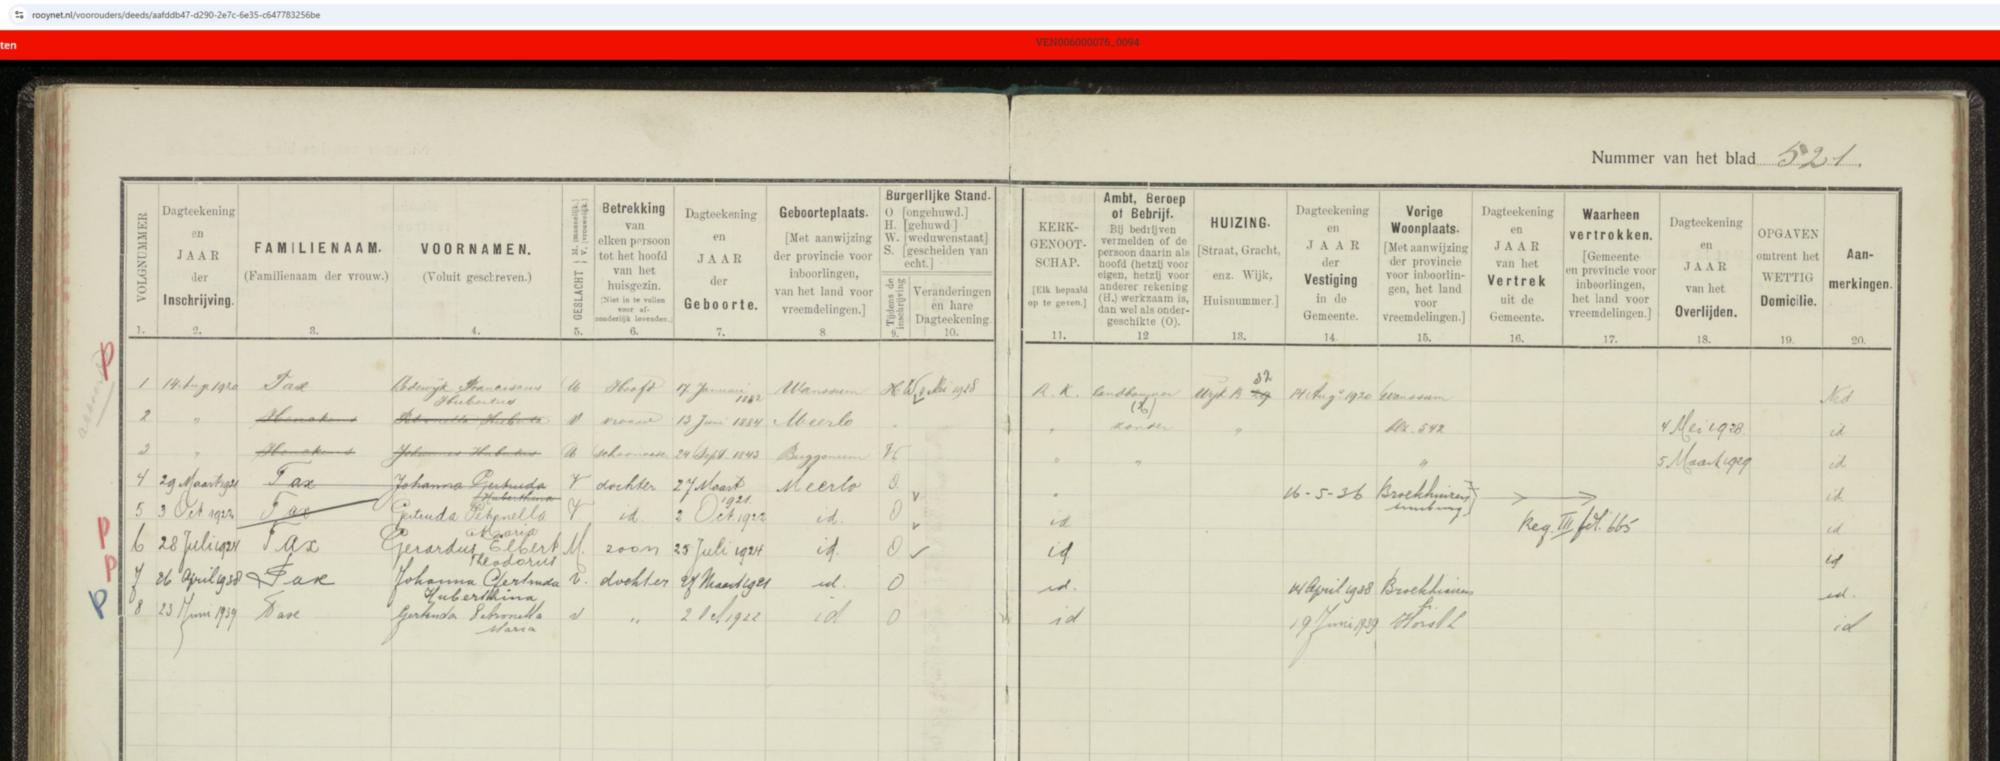 rooynet.nl/voorouders/deeds/aafddb47-d290-2e7c-6e35-c647783256be
ten
VEN006000076_0094
Nummer van het blad 521.
VOLGNUMMER
1.
Dagteekening
en
JAAR
der
Inschrijving.
2.
FAMILIENAAM.
(Familienaam der vrouw.)
3.
VOORNAMEN.
(Voluit geschreven.)
4.
GESLACHT { M. [mannelijk.] V. [vrouwelijk.]
5.
Betrekking
van
elken persoon
tot het hoofd
van het
huisgezin.
[Niet in te vullen
voor af-
zonderlijk levenden.]
6.
Dagteekening
en
JAAR
der
Geboorte.
7.
Geboorteplaats.
[Met aanwijzing
der provincie voor
inboorlingen,
van het land voor
vreemdelingen.]
8
Burgerlijke Stand.
O [ongehuwd.]
H. [gehuwd]
W. [weduwenstaat]
S. [gescheiden van
echt.]
Tijdens de
inschrijving
9.
Veranderingen
en hare
Dagteekening.
10.
KERK-
GENOOT-
SCHAP.
[Elk bepaald
op te geven.]
11.
Ambt, Beroep
of Bebrijf.
Bij bedrijven
vermelden of de
persoon daarin als
hoofd (hetzij voor
eigen, hetzij voor
anderer rekening
(H.) werkzaam is,
dan wel als onder-
geschikte (O).
12
HUIZING.
[Straat, Gracht,
enz. Wijk,
Huisnummer.]
13.
Dagteekening
en
JAAR
der
Vestiging
in de
Gemeente.
14.
Vorige
Woonplaats.
[Met aanwijzing
der provincie
voor inboorlin-
gen, het land
voor
vreemdelingen.]
15.
Dagteekening
en
JAAR
van het
Vertrek
uit de
Gemeente.
16.
Waarheen
vertrokken.
[Gemeente
en provincie voor
inboorlingen,
het land voor
vreemdelingen.]
17.
Dagteekening
en
JAAR
van het
Overlijden.
18.
OPGAVEN
omtrent het
WETTIG
Domicilie.
19.
Aan-
merkingen.
20.
P
1 14 Aug 1920 Tax Lodewijk Franciscus Hubertus M Hoofd 17 Januari 1882 Wanssum H W 4 Mei 1928 R. K. landbouwer (H) Wijk B 32 29 14 Aug 1920 Wanssum Ned
2 " Petronella Huberta V vrouw 13 Juni 1884 Meerlo " " zonder " blz. 542 4 Mei 1928 id
3 " Johannes Hubertus M 24 Sept 1843 Buggenum W " " " 5 Maart 1929 id
4 29 Maart 1921 Tax Johanna Gertruda Huberthina V dochter 27 Maart 1921 Meerlo O. " 16-5-36 Broekhuizen Limburg id
5 3 Oct 1922 Tax Gertruda Petronella Maria V id. 2 Oct 1922 id. O id Reg. III fol. 665 id
P
6 28 Juli 1924 Tax Gerardus Elbert Theodorus M. zoon 25 Juli 1924 id. O id id
P
7 26 April 1938 Tax Johanna Gertruda Huberthina V. dochter 27 Maart 1921 id. O id. 14 April 1938 Broekhuizen id.
P
8 23 Juni 1939 Taxe Gertruda Petronella Maria V " 2 Oct 1922 id O id 19 Juni 1939 Horst L id